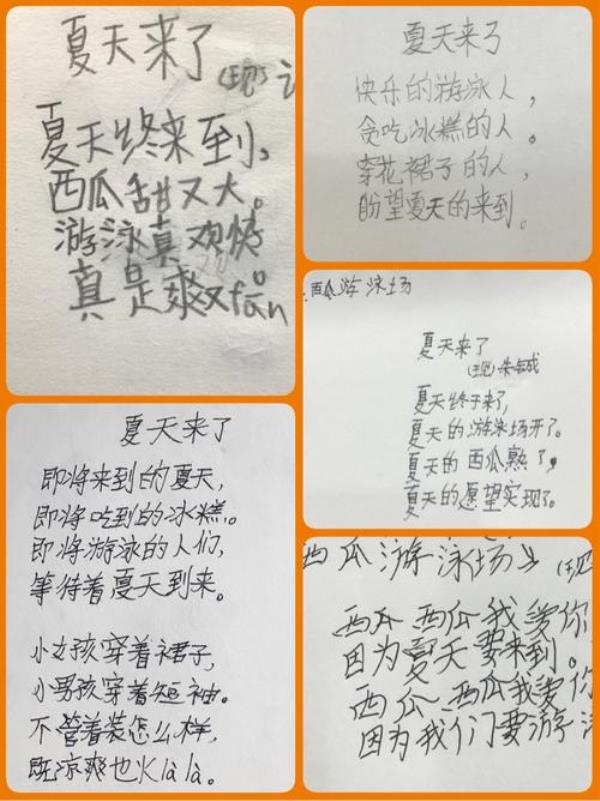 夏天来了
(现)
夏天终来到,
西瓜甜又大。
游泳真欢快
真是爽又fān
夏天来了
快乐的游泳人,
贪吃冰糕的人。
穿花裙子的人,
盼望夏天的来到。
西瓜游泳场
夏天来了
(现)朱
夏天终于来了,
夏天的游泳场开了。
夏天的西瓜熟了,
夏天的愿望实现了。
夏天来了
即将来到的夏天,
即将吃到的冰糕。
即将游泳的人们,
等待着夏天到来。
小女孩穿着裙子,
小男孩穿着短袖。
不管着装怎么样,
既凉爽也火là là。
西瓜游泳场
(现
西瓜西瓜我爱你
因为夏天要来到。
西瓜、西瓜我爱你
因为我们要游